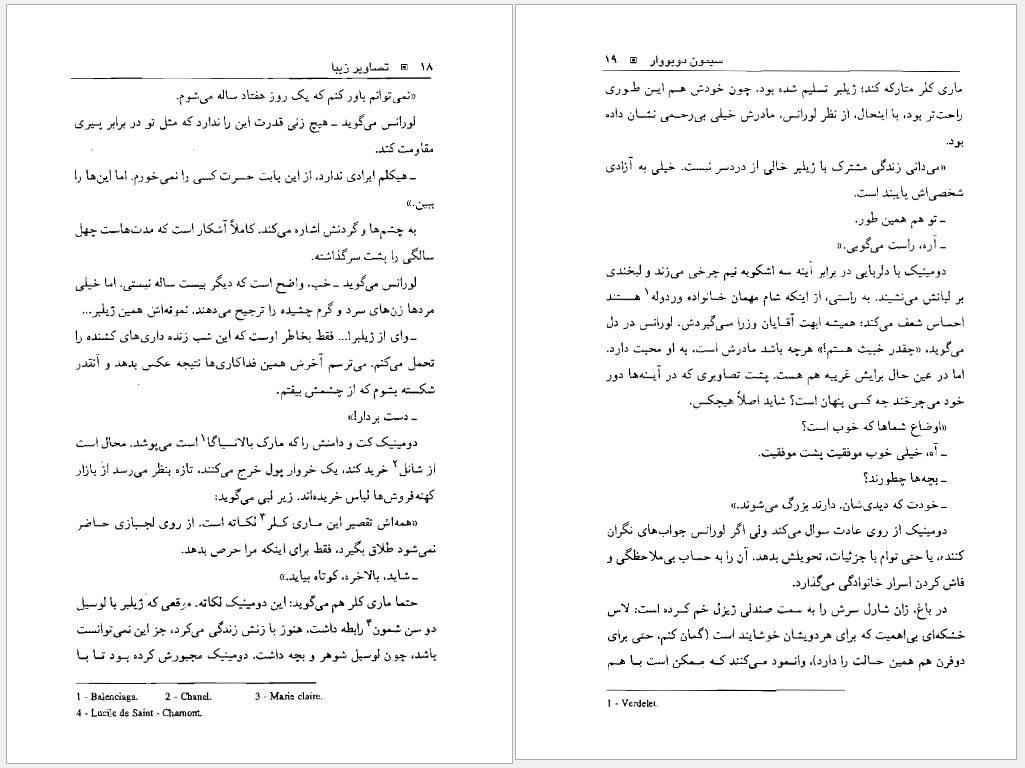 ۱۸ ▣ تصاویر زیبا
«نمی‌توانم باور کنم که یک روز هفتاد ساله می‌شوم.
لورانس می‌گوید ـ هیچ زنی قدرت این را ندارد که مثل تو در برابر پیری
مقاومت کند.
ـ هیکلم ایرادی ندارد، از این بابت حسرت کسی را نمی‌خورم. اما این‌ها را
ببین.»
به چشم‌ها و گردنش اشاره می‌کند. کاملاً آشکار است که مدت‌هاست چهل
سالگی را پشت سرگذاشته.
لورانس می‌گوید ـ خب، واضح است که دیگر بیست ساله نیستی. اما خیلی
مردها زن‌های سرد و گرم چشیده را ترجیح می‌دهند. نمونه‌اش همین ژیلبر...
ـ وای از ژیلبر!... فقط بخاطر اوست که این شب زنده داری‌های کشنده را
تحمل می‌کنم. می‌ترسم آخرش همین فداکاری‌ها نتیجه عکس بدهد و آنقدر
شکسته بشوم که از چشمش بیفتم.
ـ دست بردار!»
دومینیک کت و دامنش را که مارک بالانسیاگا۱ است می‌پوشد. محال است
از شانل۲ خرید کند، یک خروار پول خرج می‌کنند، تازه بنظر می‌رسد از بازار
کهنه‌فروش‌ها لباس خریده‌اند. زیر لبی می‌گوید:
«همه‌اش تقصیر این ماری کلر۳ لکاته است. از روی لجبازی حاضر
نمی‌شود طلاق بگیرد، فقط برای اینکه مرا حرص بدهد.
ـ شاید، بالاخره، کوتاه بیاید.»
حتما ماری کلر هم می‌گوید: این دومینیک لکاته. موقعی که ژیلبر با لوسیل
دو سن شمون۴ رابطه داشت. هنوز با زنش زندگی می‌کرد، جز این نمی‌توانست
باشد، چون لوسیل شوهر و بچه داشت. دومینیک مجبورش کرده بود تا با
1 - Balenciaga. 2 - Chanel. 3 - Marie claire.
4 - Lucile de Saint - Chamont.
سیمون دوبووار ▣ ۱۹
ماری کلر متارکه کند؛ ژیلبر تسلیم شده بود، چون خودش هم این طوری
راحت‌تر بود، با اینحال، از نظر لورانس، مادرش خیلی بی‌رحمی نشان داده
بود.
«می‌دانی زندگی مشترک با ژیلبر خالی از دردسر نیست. خیلی به آزادی
شخصی‌اش پایبند است.
ـ تو هم همین طور.
ـ آره، راست می‌گویی.»
دومینیک با دلربایی در برابر آینه سه اشکوبه نیم چرخی می‌زند و لبخندی
بر لبانش می‌نشیند. به راستی، از اینکه شام مهمان خانواده وردوله۱ هستند
احساس شعف می‌کند؛ همیشه ابهت آقایان وزرا می‌گیردش. لورانس در دل
می‌گوید، «چقدر خبیث هستم!» هرچه باشد مادرش است، به او محبت دارد.
اما در عین حال برایش غریبه هم هست. پشت تصاویری که در آینه‌ها دور
خود می‌چرخند چه کسی پنهان است؟ شاید اصلاً هیچکس.
«اوضاع شماها که خوب است؟
ـ آه، خیلی خوب موفقیت پشت موفقیت.
ـ بچه‌ها چطورند؟
ـ خودت که دیدی‌شان. دارند بزرگ می‌شوند.»
دومینیک از روی عادت سوال می‌کند ولی اگر لورانس جواب‌های نگران
کننده، یا حتی توام با جزئیات، تحویلش بدهد. آن را به حساب بی‌ملاحظگی و
فاش کردن اسرار خانوادگی می‌گذارد.
در باغ، ژان شارل سرش را به سمت صندلی ژیزل خم کرده است: لاس
خشکه‌ای بی‌اهمیت که برای هردویشان خوشایند است (گمان کنم، حتی برای
دوفرن هم همین حالت را دارد)، وانمود می‌کنند که ممکن است با هم
1 - Verdelet.